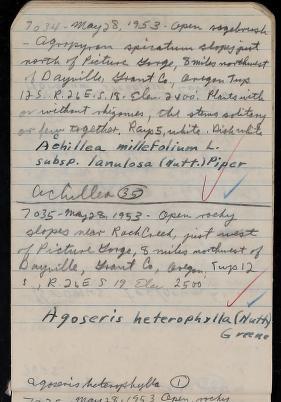 7034 - May 28, 1953 - Open sagebrush
- Agropyron spicatum slopes just
north of Picture Gorge, 8 miles northwest
of Dayville, Grant Co, Oregon Twp
12 S. R. 26 E. S. 18. Elev. 2400. Plants with
or without rhizomes, the stems solitary
or few together. Rays 5, white. Disk white
Achillea millefolium L.
subsp. lanulosa (Nutt.) Piper
Achillea (35)
7035 - May 28, 1953 - Open rocky
slopes near Rock Creek, just west
of Picture Gorge, 8 miles northwest of
Dayville, Grant Co, Oregon, Twp 12
S, R. 26 E S 19 Elev 2500
Agoseris heterophylla (Nutt)
Greene
agoseris heterophylla (1)
May 28, 1953 Open rocky